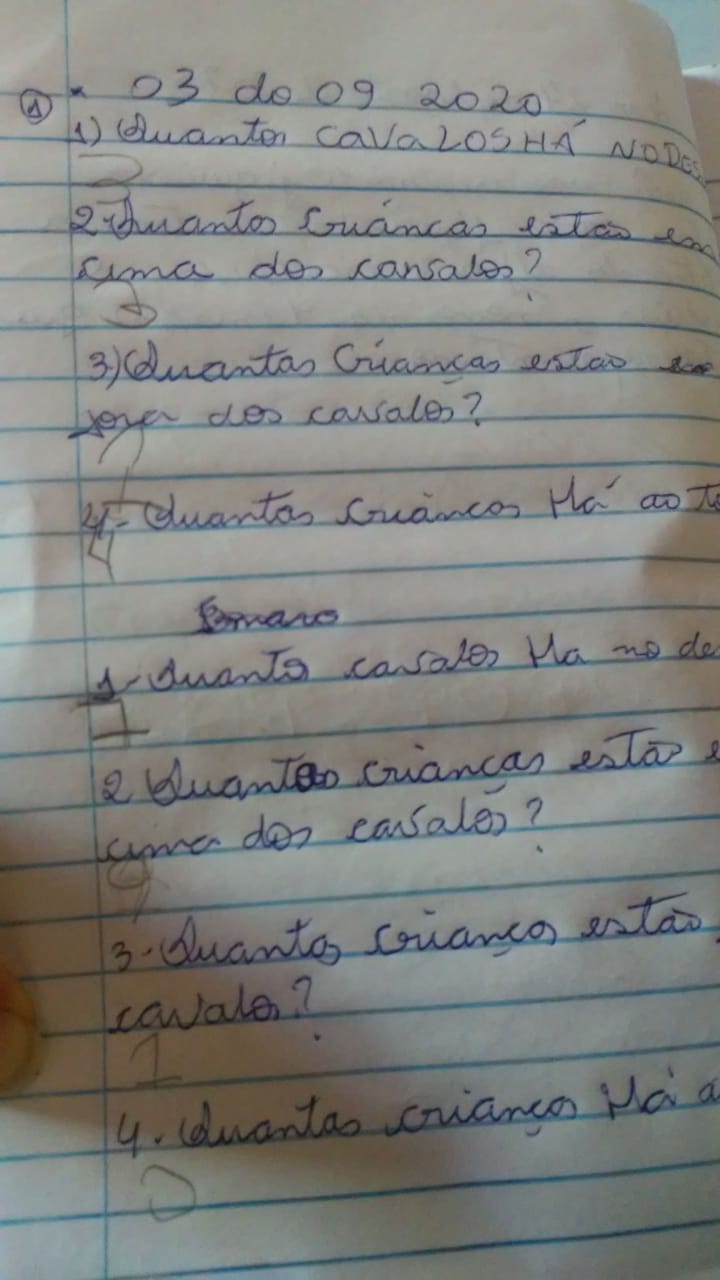 ① 03 do 09 2020
1) Quantos CAVALOS HÁ NO DES
2- Quantos crianças estão em
cima dos cavalos?
3) Quantas Crianças estão
fora dos cavalos?
1
4- Quantas crianças Há ao to
4
1- Quanto cavalos Ha no de
1
2 Quantas crianças estão e
cima dos cavalos?
9
3. Quantas crianças estão
cavalos?
1
4. Quantas crianços Há a